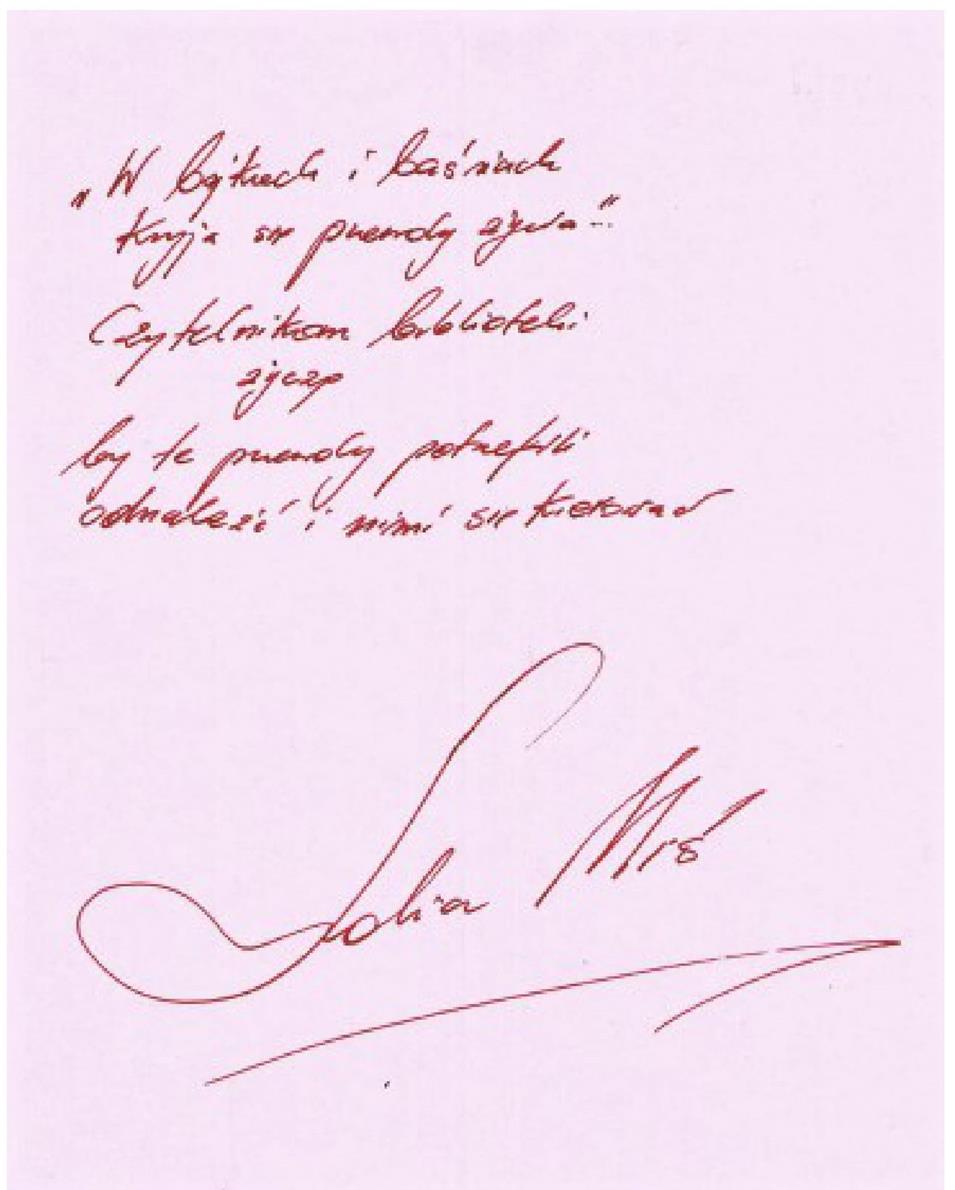 „W bajkach i baśniach
kryją się prawdy życia”
Czytelnikom biblioteki
życzę
by te prawdy potrafili
odnaleźć i nimi się kierować